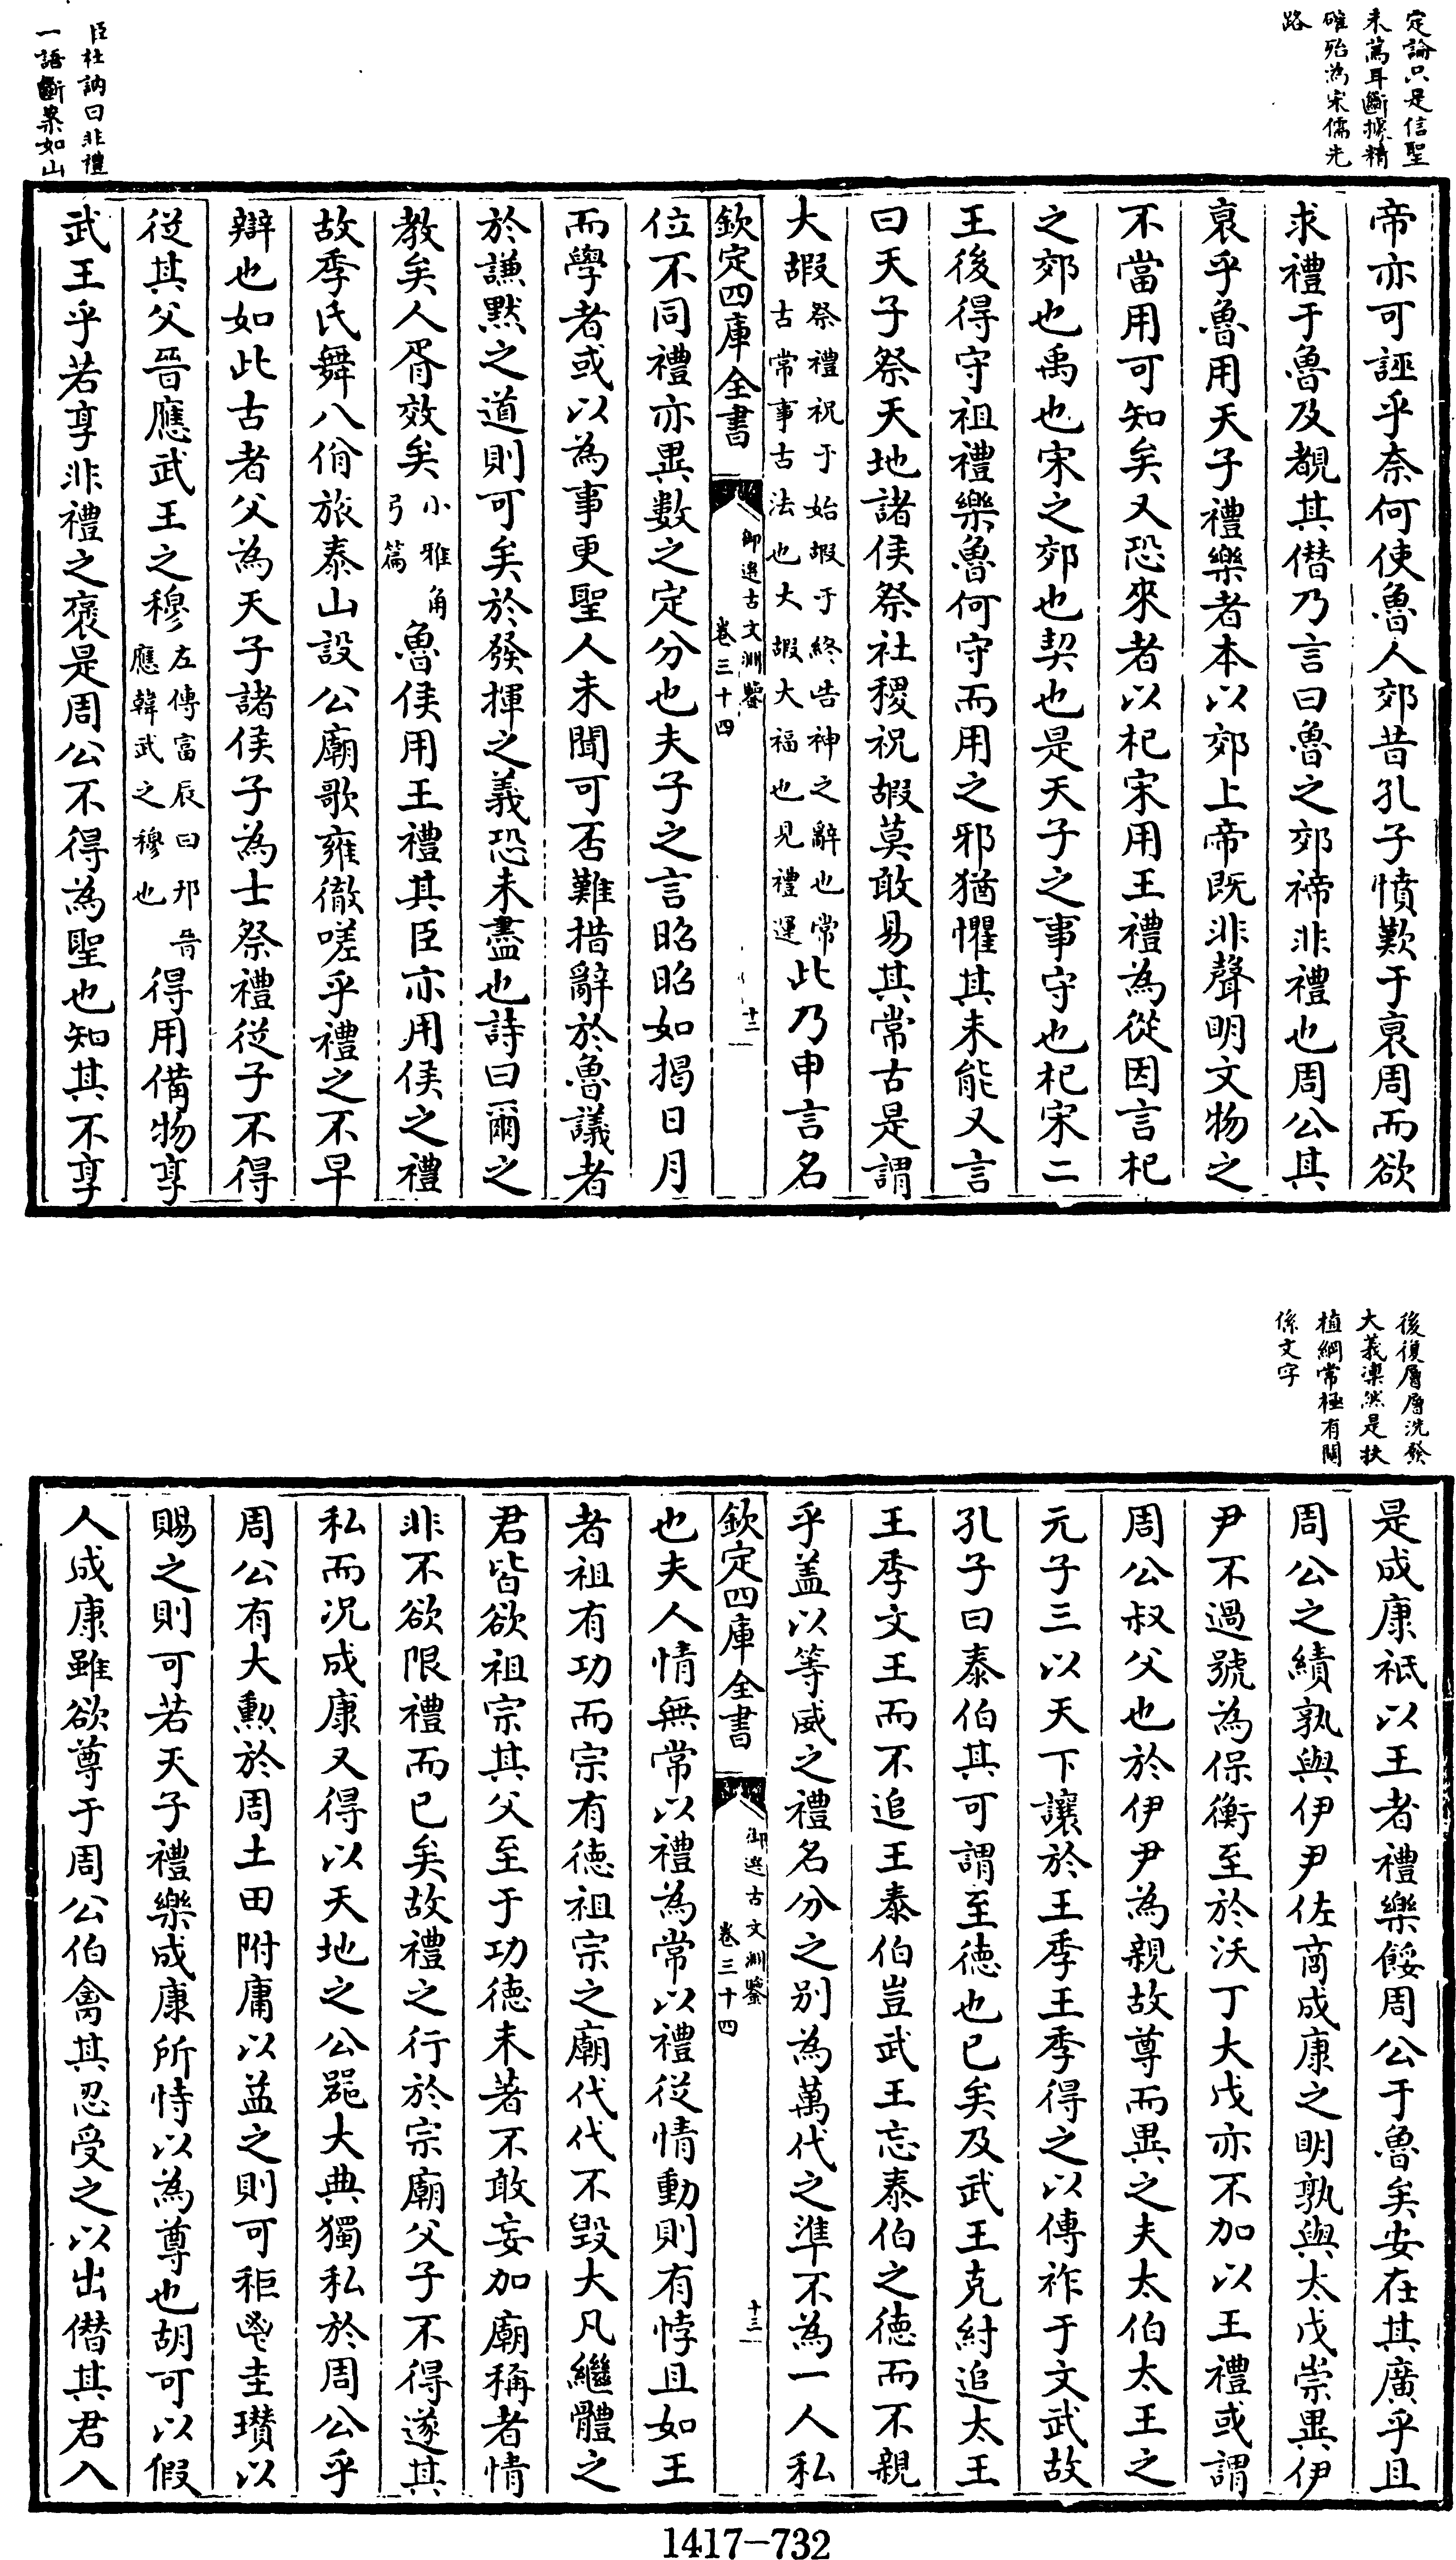 定論只是信聖
未篤耳斷據精
確殆為宋儒先
路
帝亦可誣乎奈何使魯人郊昔孔子憤歎于哀周而欲
求禮于魯及覩其僭乃言曰魯之郊禘非禮也周公其
哀乎魯用天子禮樂者本以郊上帝既非聲明文物之
不當用可知矣又恐來者以杞宋用王禮為從因言杞
之郊也禹也宋之郊也契也是天子之事守也杞宋二
王後得守祖禮樂魯何守而用之邪猶懼其未能又言
曰天子祭天地諸侯祭社稷祝嘏莫敢易其常古是謂
大嘏祭禮祝于始嘏于終告神之辭也常古常事古法也大嘏大福也見禮運此乃申言名
欽定四庫全書 御選古文淵鑒 卷三十四 十二
位不同禮亦異數之定分也夫子之言昭昭如揭日月
而學者或以為事更聖人未聞可否難措辭於魯議者
於謙默之道則可矣於發揮之義恐未盡也詩曰爾之
教矣人胥效矣小雅角弓篇魯侯用王禮其臣亦用侯之禮
故季氏舞八佾旅泰山設公廟歌雍徹嗟乎禮之不早
辯也如此古者父為天子諸侯子為士祭禮從子不得
從其父晉應武王之穆左傳富辰曰邘晉應韓武之穆也得用備物享
武王乎若享非禮之褒是周公不得為聖也知其不享
臣杜訥曰非禮
一語斷案如山
後復層層洗發
大義凜然是扶
植綱常極有關
係文字
是成康祇以王者禮樂餒周公于魯矣安在其廣乎且
周公之績孰與伊尹佐商成康之明孰與太戊崇異伊
尹不過號為保衡至於沃丁大戊亦不加以王禮或謂
周公叔父也於伊尹為親故尊而異之夫太伯太王之
元子三以天下讓於王季王季得之以傳祚于文武故
孔子曰泰伯其可謂至德也已矣及武王克紂追太王
王季文王而不追王泰伯豈武王忘泰伯之德而不親
乎盖以等威之禮名分之別為萬代之準不為一人私
欽定四庫全書 御選古文淵鑒 卷三十四 十三
也夫人情無常以禮為常以禮從情動則有悖且如王
者祖有功而宗有德祖宗之廟代代不毀大凡繼體之
君皆欲祖宗其父至于功德未著不敢妄加廟稱者情
非不欲限禮而已矣故禮之行於宗廟父子不得遂其
私而况成康又得以天地之公器大典獨私於周公乎
周公有大勲於周土田附庸以益之則可秬鬯圭瓚以
賜之則可若天子禮樂成康所恃以為尊也胡可以假
人成康雖欲尊于周公伯禽其忍受之以出僭其君入
1417-732